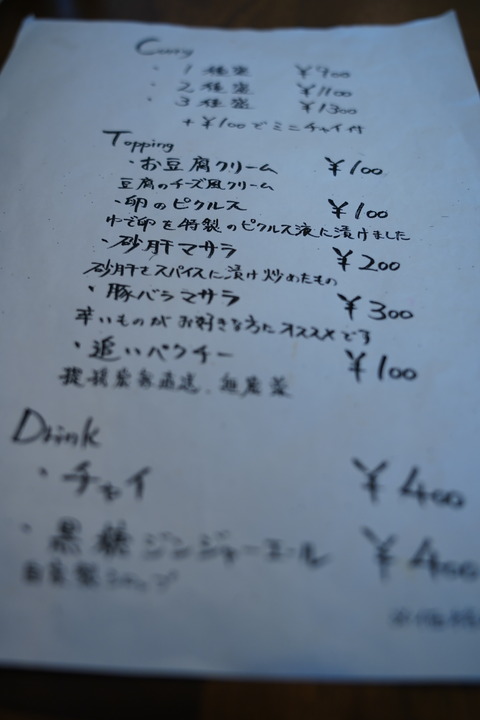 Curry
・1種盛 ¥900
・2種盛 ¥1100
・3種盛 ¥1300
+¥100でミニチャイ付
Topping
・お豆腐クリーム ¥100
豆腐のチーズ風クリーム
・卵のピクルス ¥100
ゆで卵を特製のピクルス液に漬けました
・砂肝マサラ ¥200
砂肝をスパイスに漬け炒めたもの
・豚バラマサラ ¥300
辛いものがお好きな方にオススメです
・追いパクチー ¥100
無農薬
Drink
・チャイ ¥400
・黒糖ジンジャーエール ¥400
自家製シロップ